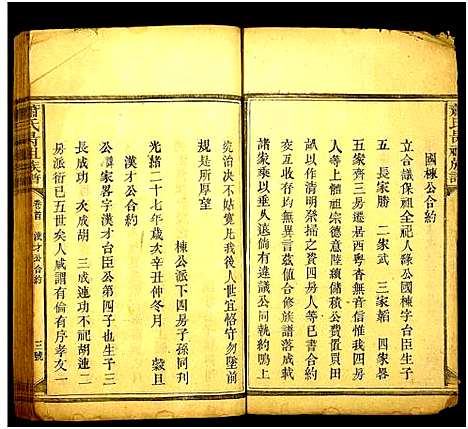 蕭氏壽祖族譜
國棟公合約
立合議保祖全祀人緣公國棟字台臣生子
五 長家勝 二家武 三家韜 四家畧
五家齊三房遷居四粵杳無音信惟我四房
人等上體祖宗德意陸續儲積公費置買田
為作清明祭掃之費四房人等已書
有合約茲值合修族譜落成載
諸家乘以垂久遠倘有違議公同執約鳴上
究治决不姑寬凡我後人世宜恪守勿墜前
規是所厚望
棟公派下四房子孫同刋
光緒二十七年歲次辛丑仲冬月 穀旦
漢才公合約
公諱家畧字漢才台臣公第四子也生子三
長成功 次成胡 三成連功不祀胡連二
房派衍已五世矣人咸謂有伯有序孝友一
蕭氏壽祖族譜
卷首 漢才公合約 三號